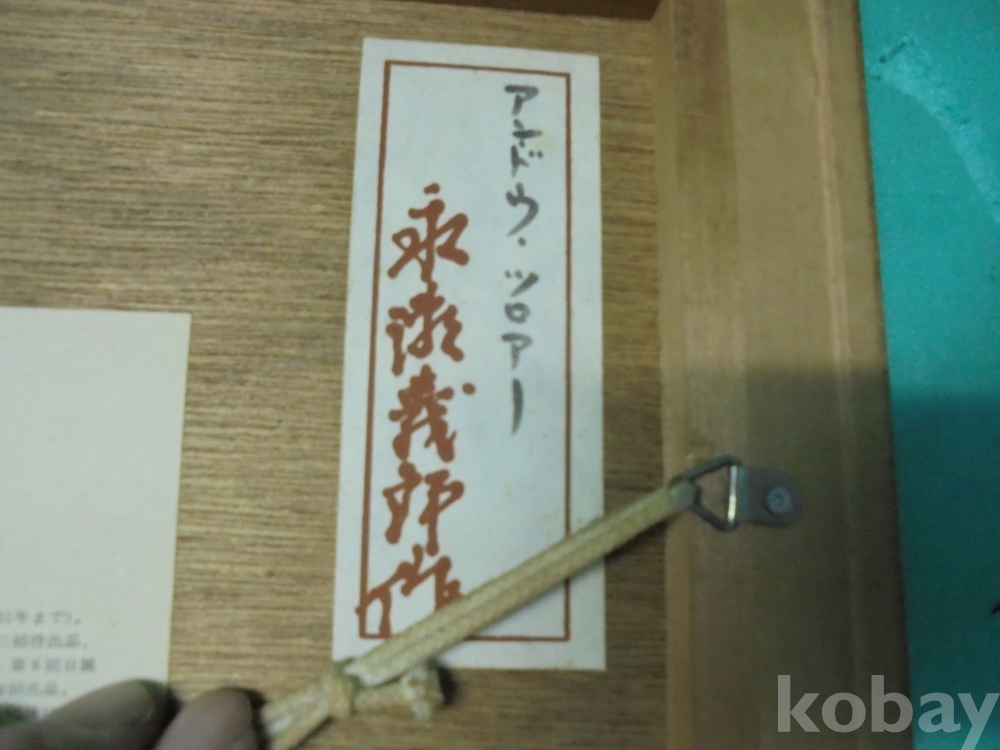 アナドウ・ツロアー
永瀬義郎作
51年まで)。
に招待出品。
第8回日展
出品。
kobay